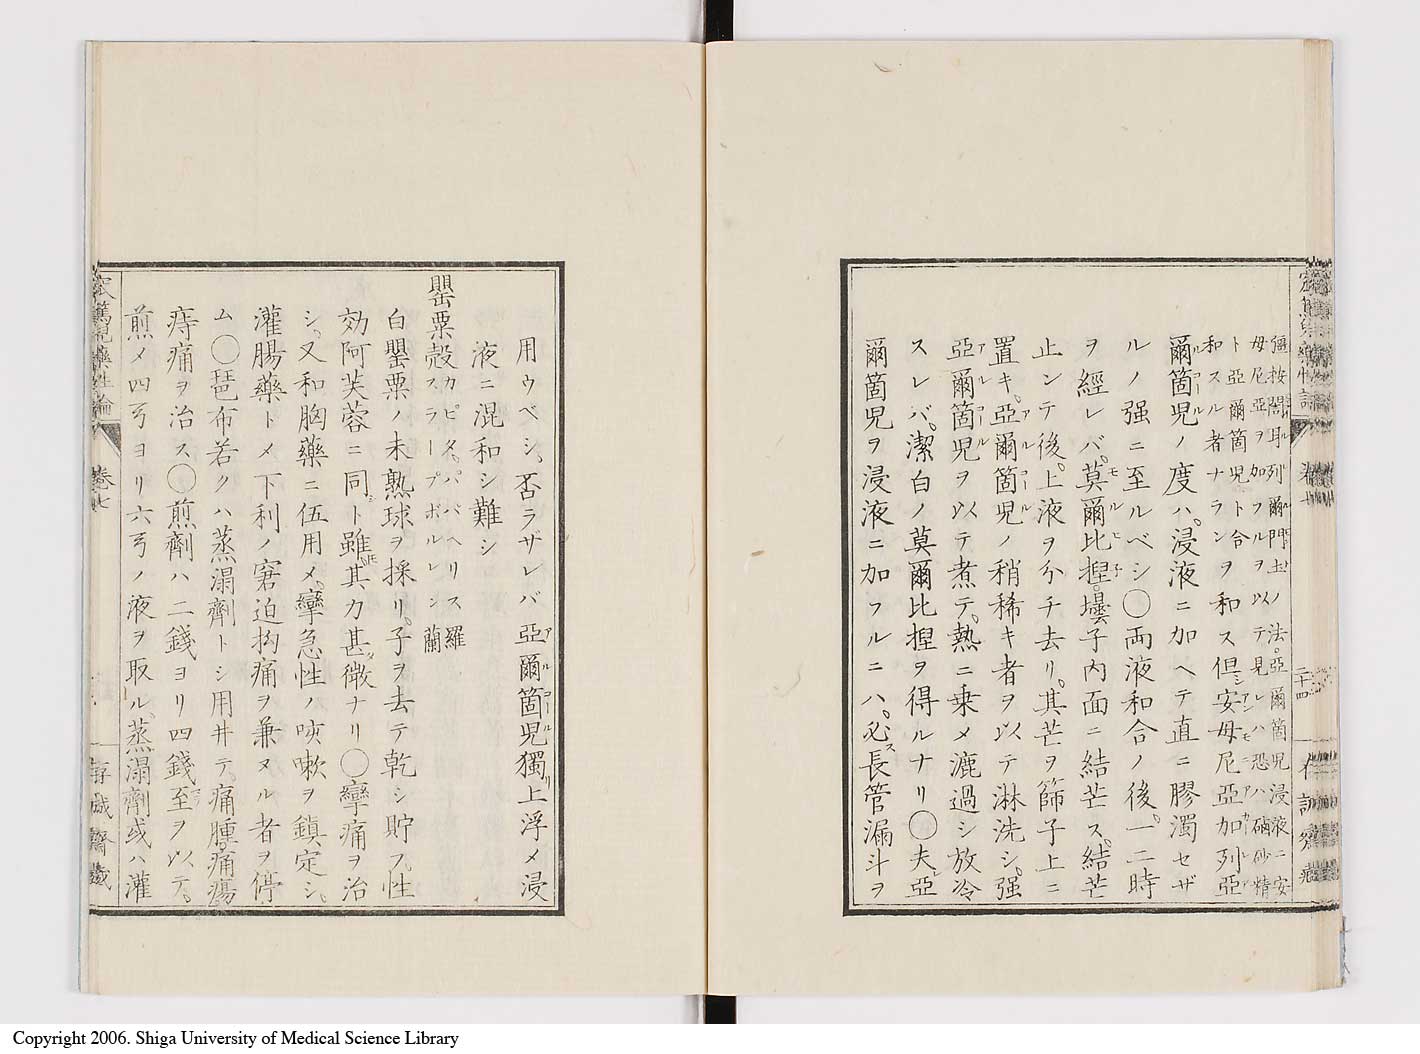 僵按閤耳列爾門士ノ法亞爾箇児浸液ニ安
母尼亞ヲ加フルヲ以テ見レハ恐ハ磠砂精
ト亞爾箇児ト合
和スル者ナランヲ和ス但シ安母尼亞加列亞
爾箇児ノ度ハ浸液ニ加ヘテ直ニ膠濁セザ
ルノ强ニ至ルベシ〇両液和合ノ後一二時
ヲ經レバ莫爾比捏壜子内面ニ結芒ス結芒
止ンテ後上液ヲ分チ去リ其芒ヲ篩子上ニ
置キ亞爾箇児ノ稍稀キ者ヲ以テ淋洗シ强
亞爾箇児ヲ以テ煮テ熱ニ乗メ漉過シ放冷
スレバ潔白ノ莫爾比捏ヲ得ルナリ〇夫亞
爾箇児ヲ浸液ニ加フルニハ必ス長管漏斗ヲ
用ウベシ否ラザレバ亞爾箇児獨リ上浮メ浸
液ニ混和シ難シ
罌粟殻 カピタ、パパヘリス 羅
スラープボルレン 蘭
白罌粟ノ未熟球ヲ採リ子ヲ去テ乾シ貯フ性
効阿芙蓉ニ同ト雖其力甚微ナリ〇攣痛ヲ治
シ又和胸藥ニ伍用メ攣急性ノ咳嗽ヲ鎮定シ
灌腸藥トメ下利ノ窘迫痾痛ヲ兼ヌル者ヲ停
ム〇琶布若クハ蒸溻劑トシ用井テ痛腫痛瘍
痔痛ヲ治ス〇煎劑ハ二錢ヨリ四錢至ヲ以テ
煎メ四弓ヨリ六弓ノ液ヲ取ル蒸溻劑或ハ灌
窊篤児藥性論 巻七
二十四
Copyright 2006. Shiga University of Medical Science Library